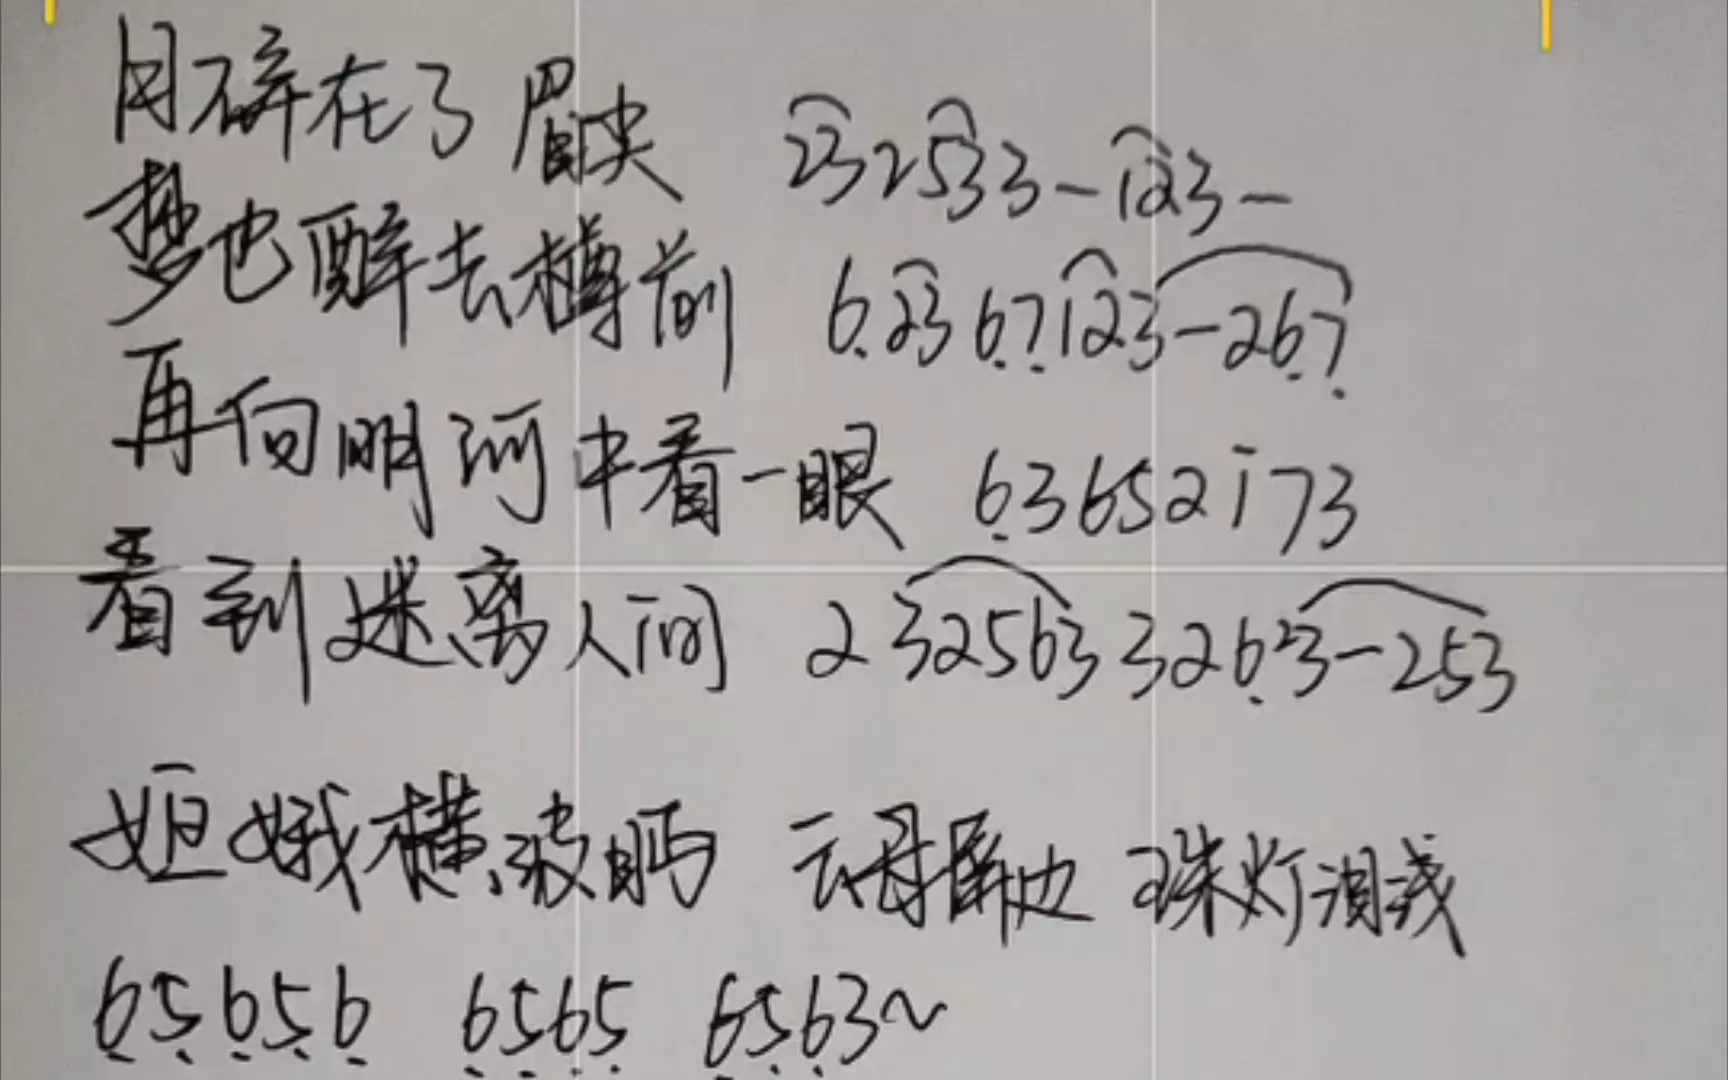 月碎在了 眉尖 232533-123-
梦也醉去樽前 62367123-267
再向明河中看一眼 63652173
看到迷离人间 23256332623-253
姮娥横波眄 云母屏边 珠灯湖浅
65656 6565 6563~